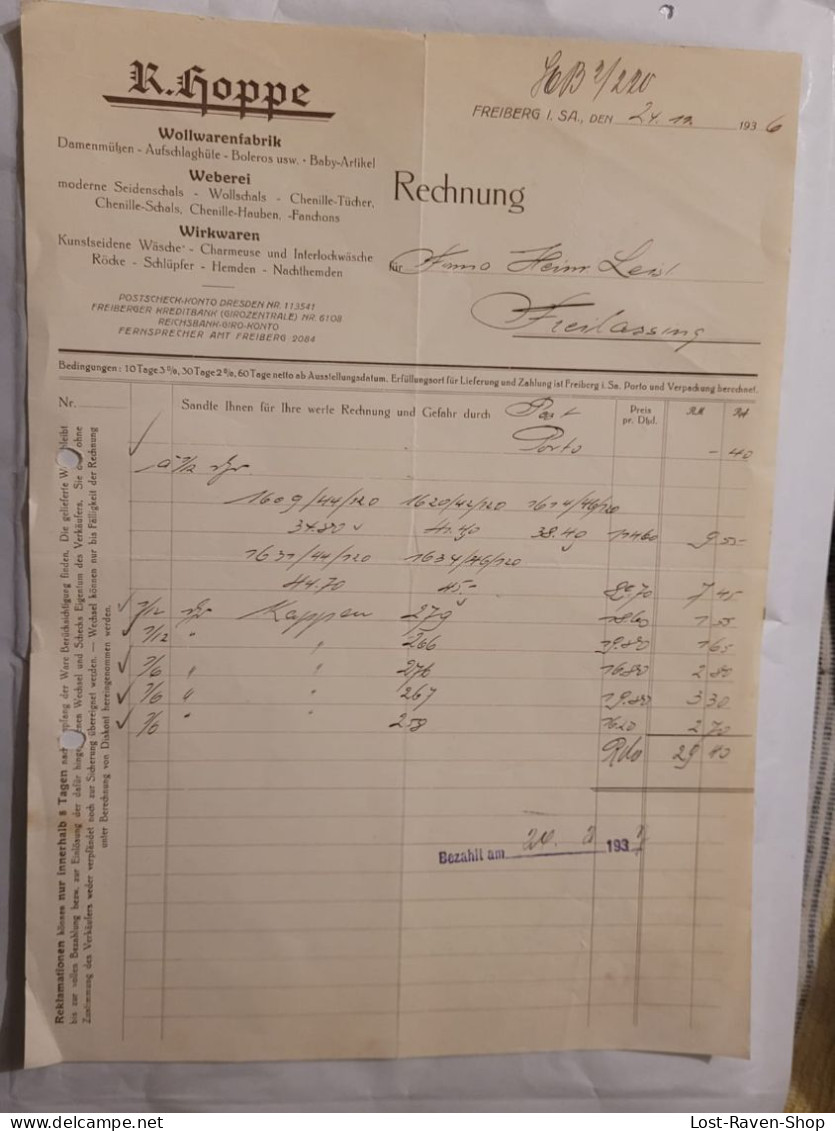 R. Hoppe
Wollwarenfabrik
Damenmützen - Aufschlaghüte - Boleros usw. - Baby-Artikel
Weberei
moderne Seidenschals - Wollschals - Chenille-Tücher,
Chenille-Schals, Chenille-Hauben, -Fanchons
Wirkwaren
Kunstseidene Wäsche - Charmeuse und Interlockwäsche
Röcke - Schlüpfer - Hemden - Nachthemden
POSTSCHECK-KONTO DRESDEN NR. 113541
FREIBERGER KREDITBANK (GIROZENTRALE) NR. 6108
REICHSBANK-GIRO-KONTO
FERNSPRECHER AMT FREIBERG 2084
FREIBERG I. SA., DEN 24. 12. 1936
Rechnung
für Firma Heinr. Leist
Freilassing
Bedingungen: 10 Tage 3%, 30 Tage 2%, 60 Tage netto ab Ausstellungsdatum. Erfüllungsort für Lieferung und Zahlung ist Freiberg i. Sa. Porto und Verpackung berechnet.
Nr. Sandte Ihnen für Ihre werte Rechnung und Gefahr durch Post Preis pr. Dtzd. RM Rpf
Porto - 40
1609/44/120 1620/42/120 1614/46/120
34.80 41.40 38.40 114.60 9 55
1631/44/120 1634/46/120
44.70 45.- 89.70 7 45
1/12 Kappen 279 18.60 1 55
1/12 " " 266 19.80 1 65
1/6 " " 276 16.80 2 80
1/6 " " 267 19.80 3 30
1/6 " " 258 16.20 2 70
29 40
Bezahlt am 20. 2. 1937
Reklamationen können nur innerhalb 8 Tagen nach Empfang der Ware Berücksichtigung finden. Die gelieferte W bleibt
bis zur vollen Bezahlung bezw. zur Einlösung der dafür hingegebenen Wechsel und Schecks Eigentum des Verkäufers. Sie ohne
Zustimmung des Verkäufers weder verpfändet noch zur Sicherung übereignet werden. — Wechsel können nur bis Fälligkeit der Rechnung
unter Berechnung von Diskont hereingenommen werden.
Lost-Raven-Shop